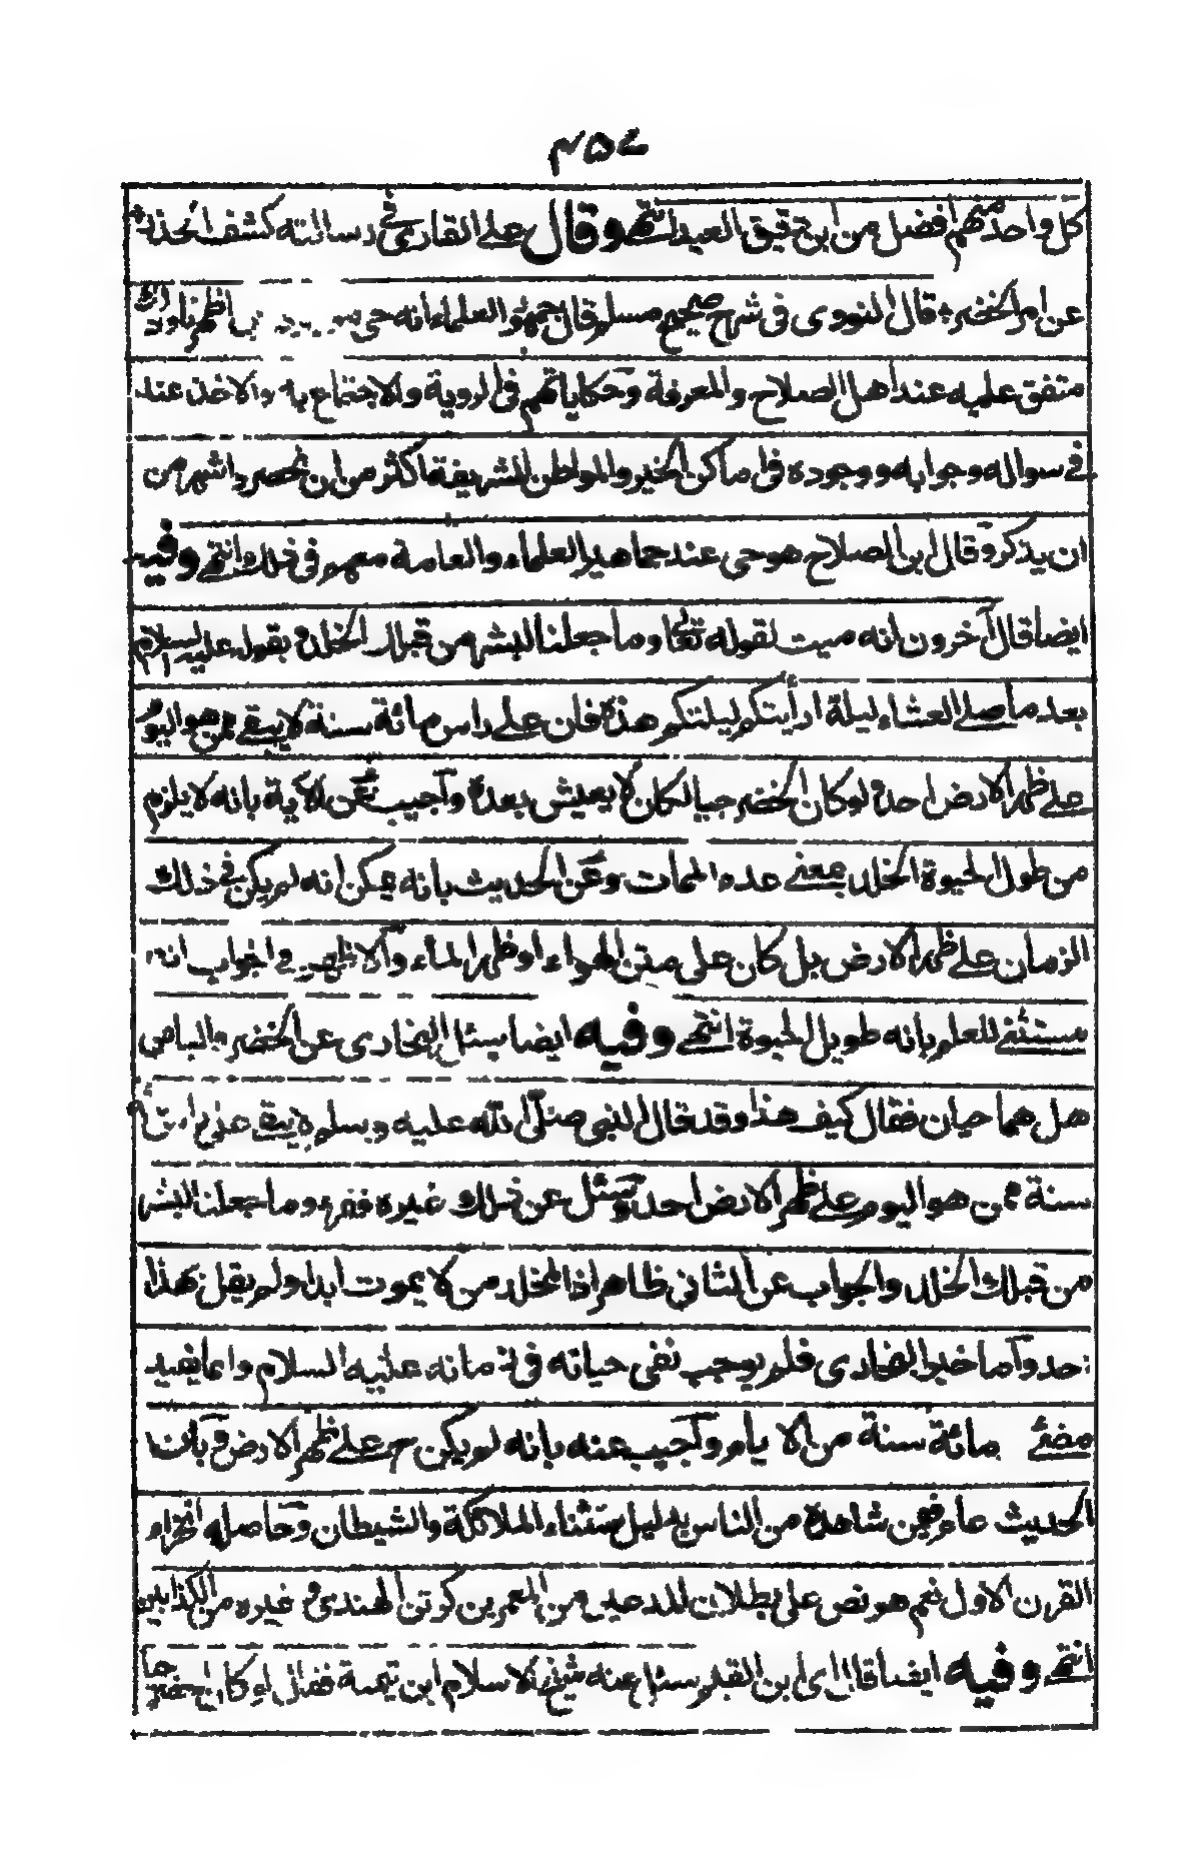 ٤٥٧
كل واحد منهم افضل من ابن دقيق العيد انتهى وقال على القارى فى رسالته كشف الخدر
عن امر الخضر قال النووى فى شرح صحيح مسلم قال جمهور العلماء انه حى بين اظهرنا وذلك
متفق عليه عند اهل الصلاح والمعرفة وحكاياتهم فى الروية والاجتماع به والاخذ عنه
فى سواله وجوابه ووجوده فى اماكن الخير والمواطن الشريفة اكثر من ان تحصر واشهر من
ان يذكر وقال ابن الصلاح هو حى عند جماهير العلماء والعامة معهم فى ذلك انتهى وفيه
ايضا قال آخرون انه ميت لقوله تعالى وما جعلنا لبشر من قبلك الخلد وبقوله عليه السلام
بعد ما صلى العشاء ليلة ارأيتكم ليلتكم هذه فان على راس مائة سنة لا يبقى ممن هو اليوم
على ظهر الارض احد ولو كان الخضر حيا لكان لا يعيش بعده واجيب عن الآية بانه لا يلزم
من طول الحيوة الخلد بمعنى عدم الممات وعن الحديث بانه يمكن انه لم يكن فى ذلك
الزمان على ظهر الارض بل كان على متن الهواء او ظهر الماء والاظهر فى الجواب انه
مستثنى للعلم بانه طويل الحيوة انتهى وفيه ايضا سئل البخارى عن الخضر والياس
هل هما حيان فقال كيف هذا وقد قال النبى صلى الله عليه وسلم لا يبقى على راس مائة
سنة ممن هو اليوم على ظهر الارض احد وسئل عن ذلك غيره فقرء وما جعلنا لبشر
من قبلك الخلد والجواب عن الثانى ظاهر اذ المخلد من لا يموت ابدا ولم يقل بهذا
احد واما خبر البخارى فلم يوجب نفى حياته فى زمانه عليه السلام وانما يفيد
مضى مائة سنة من الايام واجيب عنه بانه لم يكن ح على ظهر الارض وبان
الحديث عام فيمن شاهده من الناس بدليل استثناء الملائكة والشيطان وحاصله انخرام
القرن الاول نعم هو نص على بطلان المدعين من المعمرين كرتن الهندى وغيره من الكذابين
انتهى وفيه ايضا قال اى ابن القيم سئل عنه شيخ الاسلام ابن تيمية فقال لو كان الخضر حيا